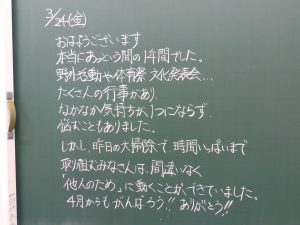 3/24(金)
おはようございます
本当にあっという間の1年間でした。
野外活動や体育祭 文化発表会...
たくさんの行事があり、
なかなか気持ちが1つにならず、
悩むこともありました。
しかし、昨日の大掃除で、時間いっぱいまで
取り組むみなさんは、間違いなく
「他人のため」に動くことができていました。
4月からもがんばろう!! ありがとう!!